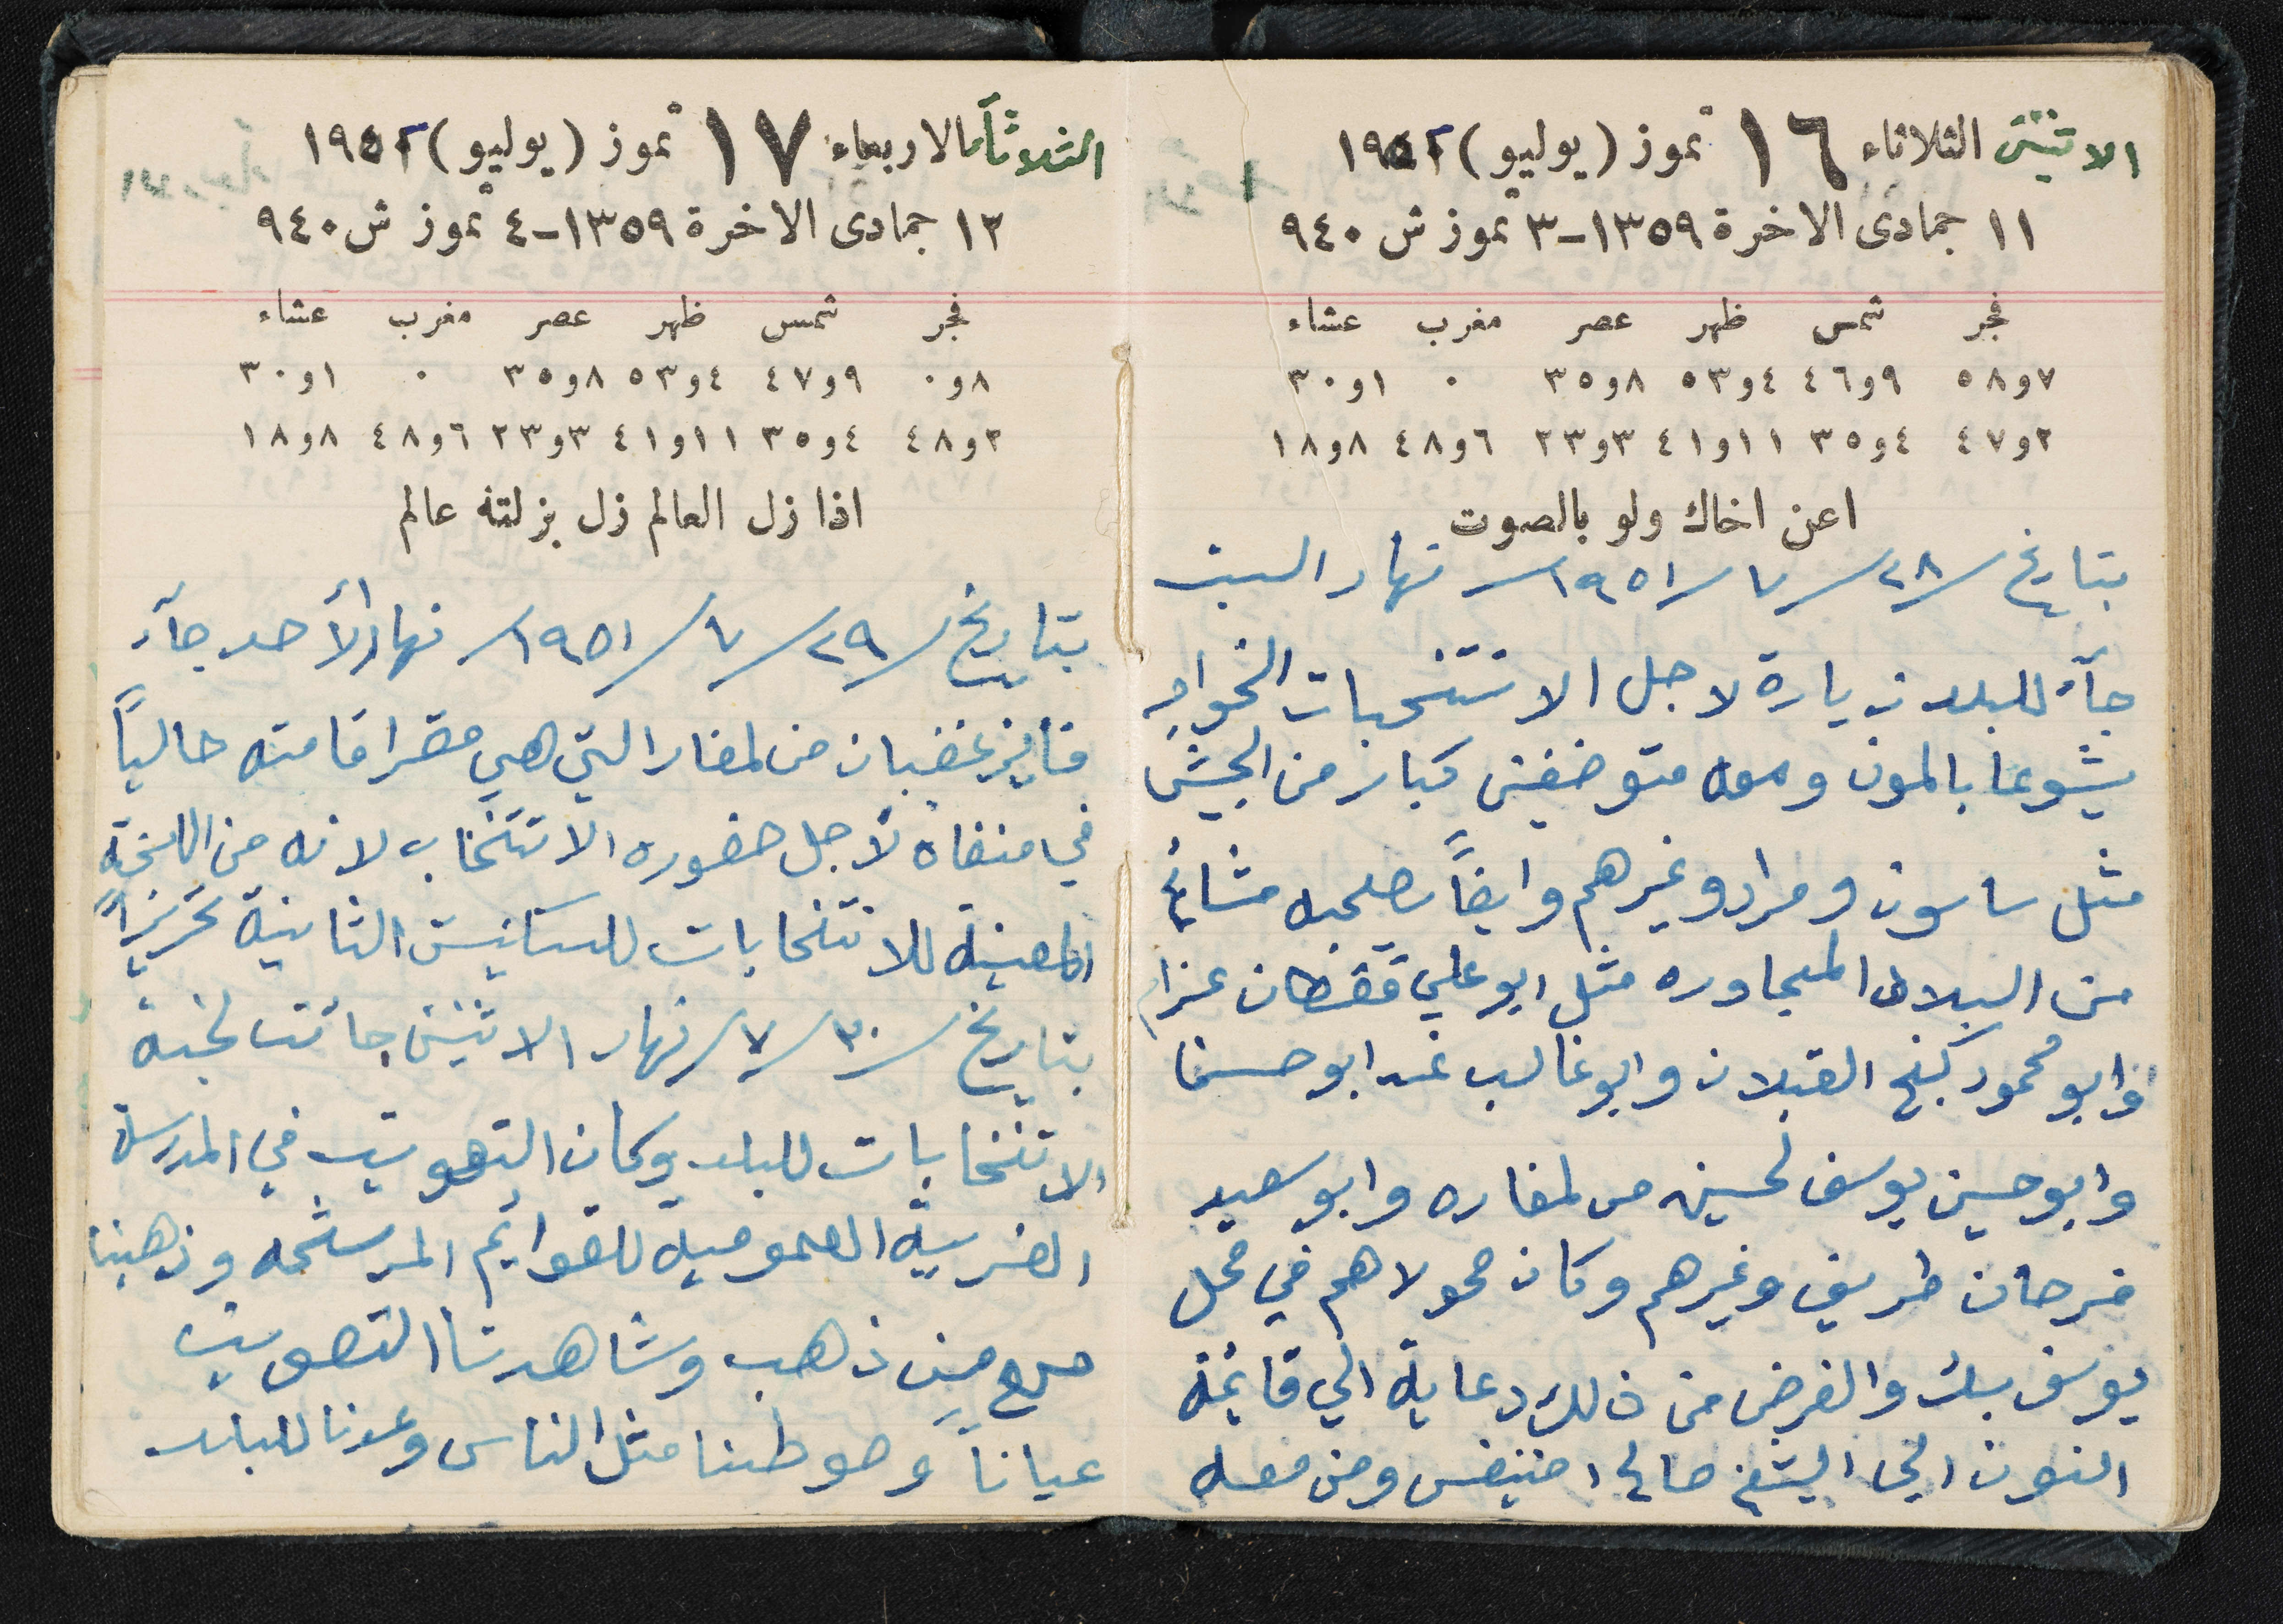 الاثنين الثلاثاء ١٦ تموز (يوليو) ١٩٥١
١١ جمادى الاخرة ١٣٥٩-٣ تموز ش ٩٤٠
فجر شمس ظهر عصر مغرب عشاء
٧و٥٨ ٩و٤٦ ٤و٥٣ ٨و٣٥ ٠ ١و٣٠
٢و٤٧ ٤و٣٥ ١١و٤١ ٣و٢٣ ٦و٤٨ ٨و١٨
اعن اخاك ولو بالصوت
بتاريخ ٢٨/٧/١٩٥١ نهار السبت
جآء للبلد زيارة لاجل الانتخبات الخواجه
يشوعا بالمون ومعه متوضفين كبار من الجيش
مثل ساسون ومراد وغيرهم وايضاً بصحبه مشائخ
من البلاد المجاوره مثل ابو علي قفطان عزام
وابو محمود كنج القبلان وابو غالب غد ابو حسنا
وابو حسين يوسف لحسين من لمغاره وابو سعيد
فرحان طريف وغيرهم وكان محولاهم في محل
يوسف بك والغرض من ذلك دعاية الي قائمة
النون الي الشيخ صالح اخنيفس ومن معه
الثلاثآء الاربعاء ١٧ تموز (يوليو) ١٩٥١
١٢ جمادى الاخرة ١٣٥٩-٤ تموز ش ٩٤٠
فجر شمس ظهر عصر مغرب عشاء
٨و٠ ٩و٤٧ ٤و٥٣ ٨و٣٥ ٠ ١و٣٠
٢و٤٨ ٤و٣٥ ١١و٤١ ٣و٢٣ ٦و٤٨ ٨و١٨
اذا زل العالم زل بزلته عالم
بتاريخ ٢٩/٧/١٩٥١ نهار الأحد جآء
فايز غضبان من لمغار التي هي مقر اقامته حالياً
في منفاه لأجل حضوره الانتخاب لانه من اللجنة
المعينة للانتخابات للكنيست الثانية تحريراً
بتاريخ ٣٠/٧/ نهار الاثنين جائت لجنة
الانتخابات للبلد وكان التصويت في المدرسة
الغربية العموميه للقوايم المرشحه وذهبنا
مع من ذهب وشاهدنا التصويت
عياناً وصوطنا مثل الناس وعدنا للبلد